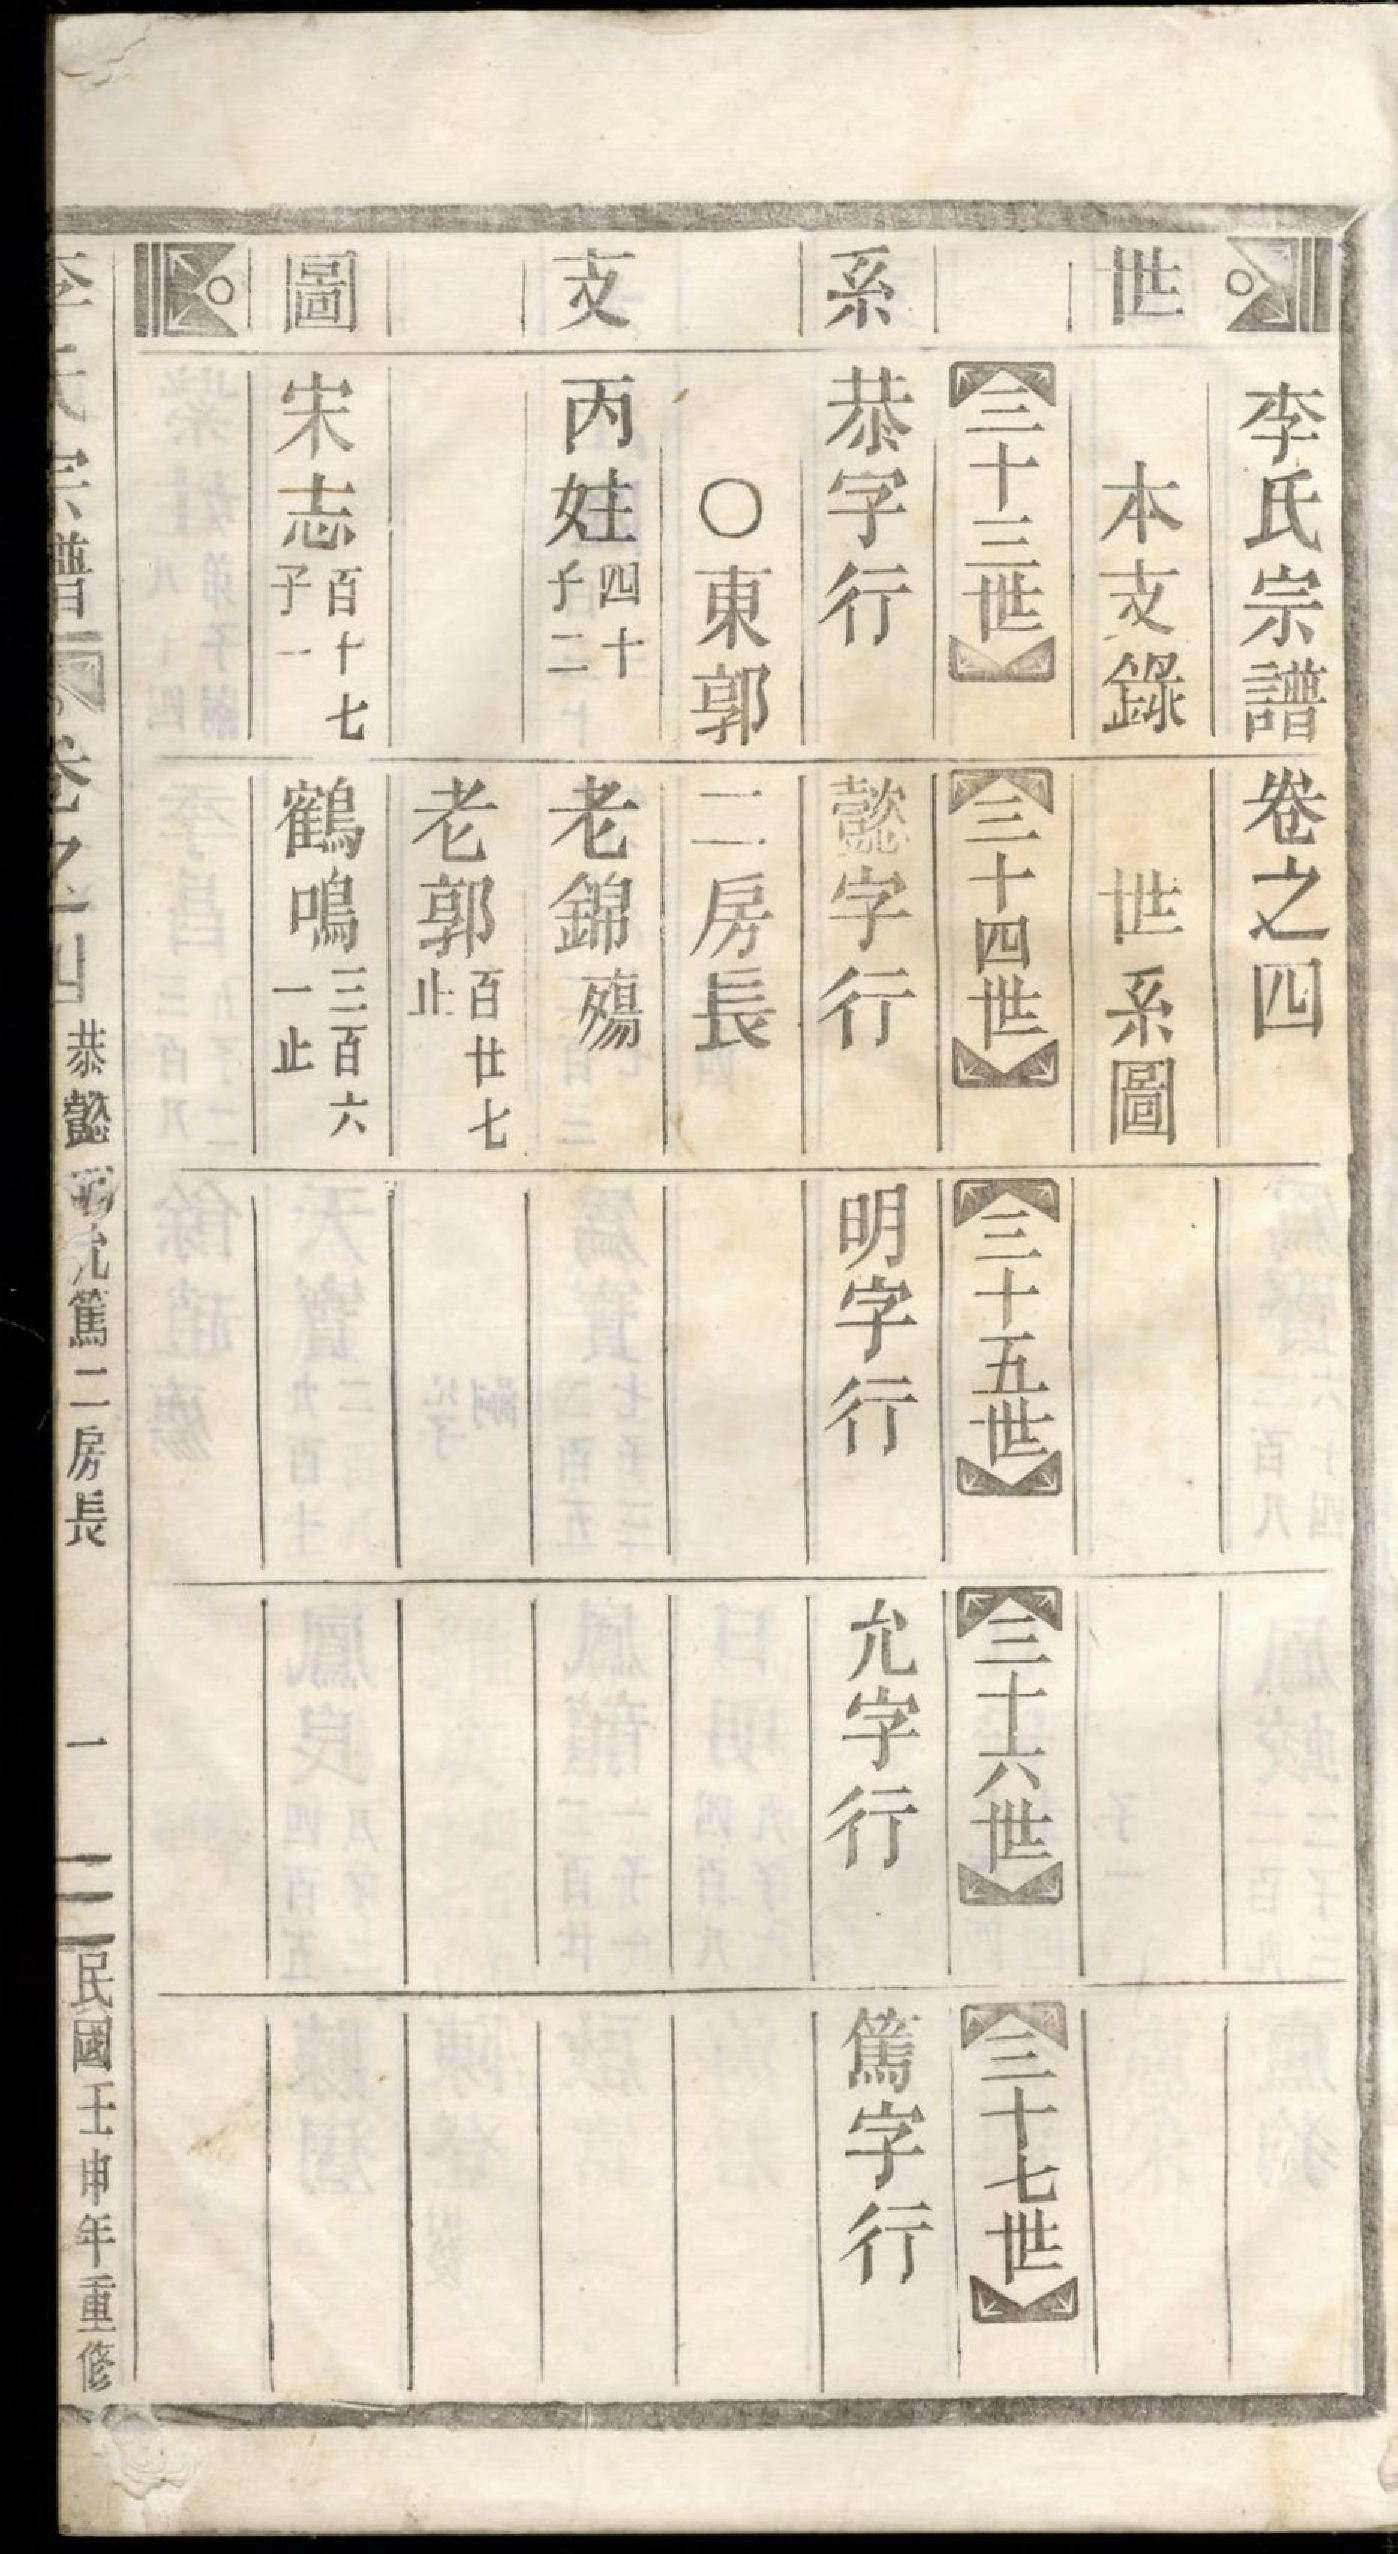 世系支圖
李氏宗譜卷之四
本支錄世系圖
三十三世
三十四世
三十五世
三十六世
三十七世
恭字行
懿字行
明字行
允字行
篤字行
○東郭二房長
丙姓四十
子二
老錦殤
老郭百廿七
止
宋志百十七
子一
鶴鳴三百六
一止
李氏宗譜
卷之四
恭懿明允篤二房長
一
民國壬申年重修